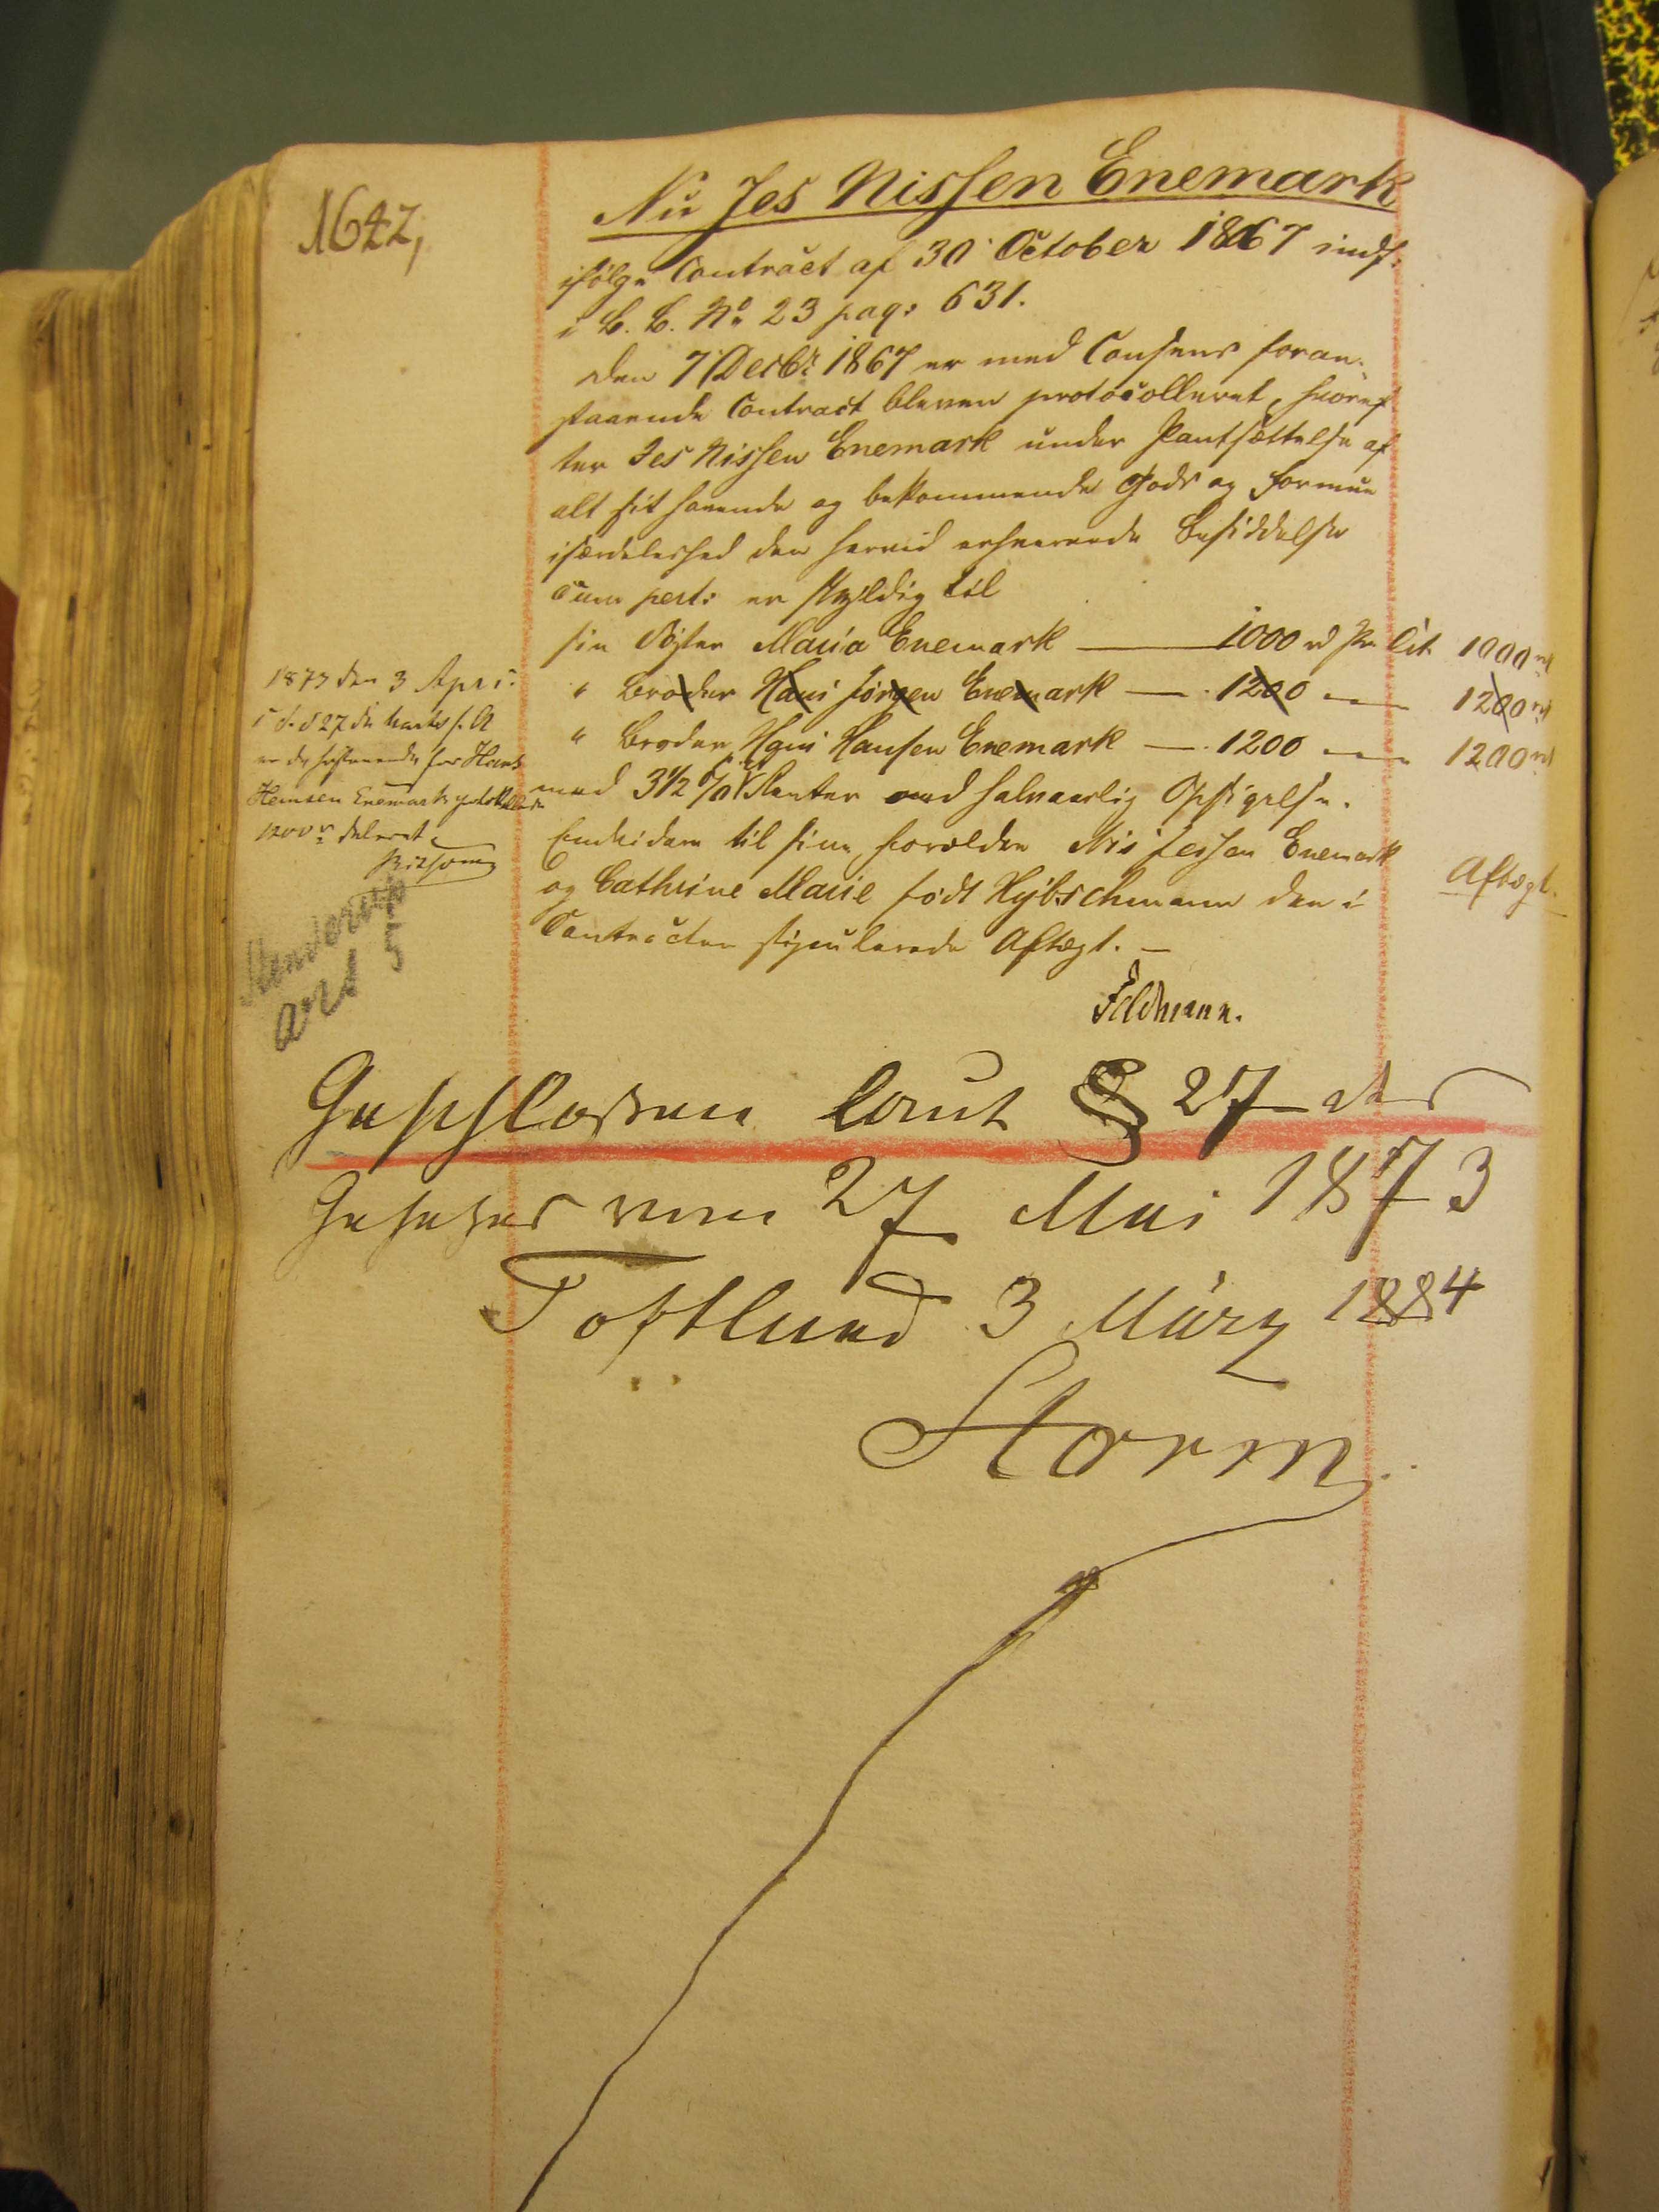 1642,
Nu Jes Nissen Enemark
ifølge Contract af 30 October 1867 indf:
i C. C. No 23 pag: 631.
Den 7 Decbr 1867 er med Consens foran-
staaende Contract bleven protocolleret, hvoref
ter Jes Nissen Enemark under Pantsættelse af
alt sit havende og bekommende Gods og Formue
isærdeleshed den herved erhvervede Besiddelse
cum pert: er skyldig til
sin Søster Maria Enemark — 1000 rd Pr Crt 1000 rd
" Broder Hans Jörgen Enemark — 1200 — 1200 rd
" Broder Hans Hansen Enemark — 1200 — 1200 rd
med 3 1/2 % Renter med halvaarlig Opsigelse.
Endvidere til sine Forældre Nis Jessen Enemark
og Cathrine Marie født Hybschmann den i
Contracten stipulerede Aftægt. —
Aftægt.
Feldmann.
1873 den 3 April
for Hans
Hansen Enemark protokollerede
1200 rd deleret
Art 5
Geschlossen laut § 27 des
Gesetzes vom 27 Mai 1873
Toftlund 3 März 1884
Storm